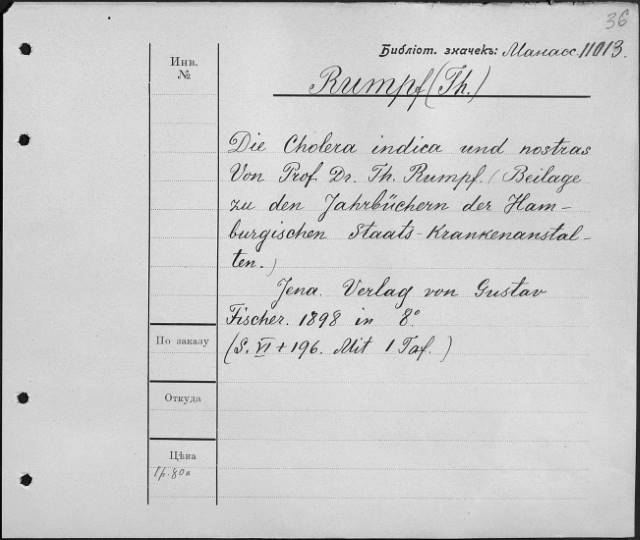 36
Библіот. значекъ: Манасс. 11013.
Инв.
№
Rumpf (Th.)
Die Cholera indica und nostras
Von Prof. Dr. Th. Rumpf. (Beilage
zu den Jahrbüchern der Ham-
burgischen Staats-Krankenanstal-
ten.)
Jena. Verlag von Gustav
Fischer. 1898 in 8°
(S. VI + 196. Mit 1 Taf.)
По заказу
Откуда
Цѣна
1р. 80к